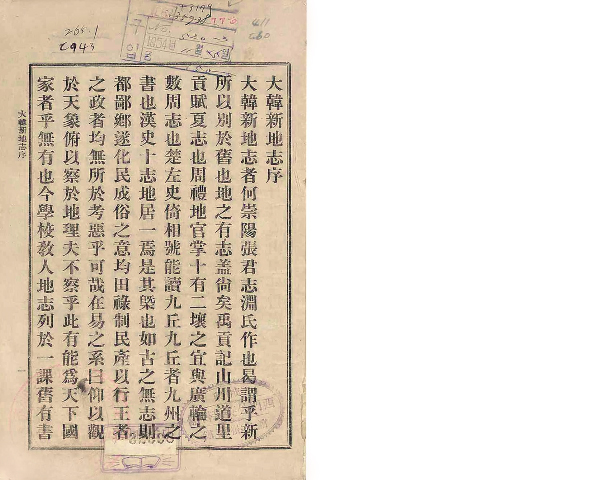 大韓新地志序
大韓新地志者何崇陽張君志淵氏作也易謂乎新
所以別於舊也地之有志盖尙矣禹貢記山川道里
貢賦夏志也周禮地官掌十有二壤之宜與廣輪之
數周志也楚左史倚相號能讀九丘九丘者九州之
書也漢史十志地居一焉是其槩也如古之無志則
都鄙鄕遂化民成俗之意均田祿制民產以行王者
之政者均無所於考惡乎可哉在易之系曰仰以觀
於天象俯以察於地理夫不察乎此有能爲天下國
家者乎無有也今學校敎人地志列於一課舊有書
大韓新地志序
一